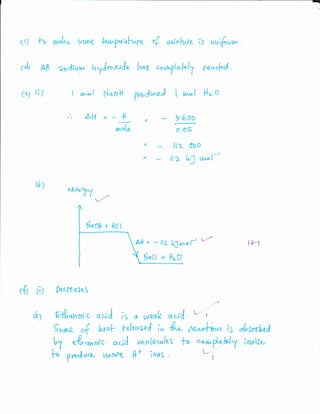 (c) to make sure temperature of mixture is uniform.
(d) All sodium hydroxide has completely reacted.
(e) i) 1 mol NaOH produced 1 mol H2O
∴ ΔH = - H / mole = - 5600 / 0.05
= - 112 000
= - 112 kJ mol⁻¹
ii) energy
NaOH + HCl
ΔH = - 112 kJmol⁻¹
1+1
NaCl + H2O
(f) (i) Decreases
ii) Ethanoic acid is a weak acid. 1
Some of heat released in the reaction is absorbed
by ethanoic acid molecules to completely ionise
to produce more H⁺ ions. 1